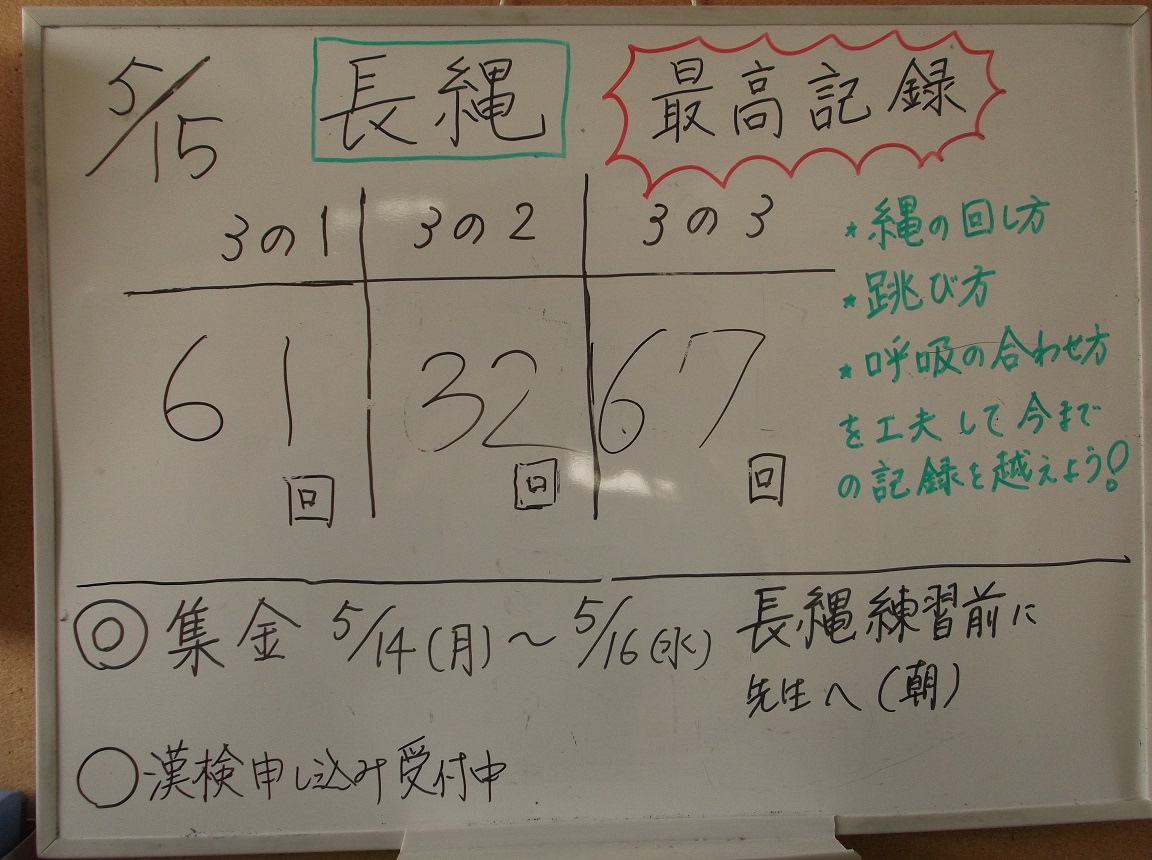 5/15 長縄 最高記録
3の1 3の2 3の3
61回 32回 67回
*縄の回し方
*跳び方
*呼吸の合わせ方
を工夫して今まで
の記録を越えよう!
◎集金 5/14(月)～5/16(水) 長縄練習前に
先生へ(朝)
○漢検申し込み受付中